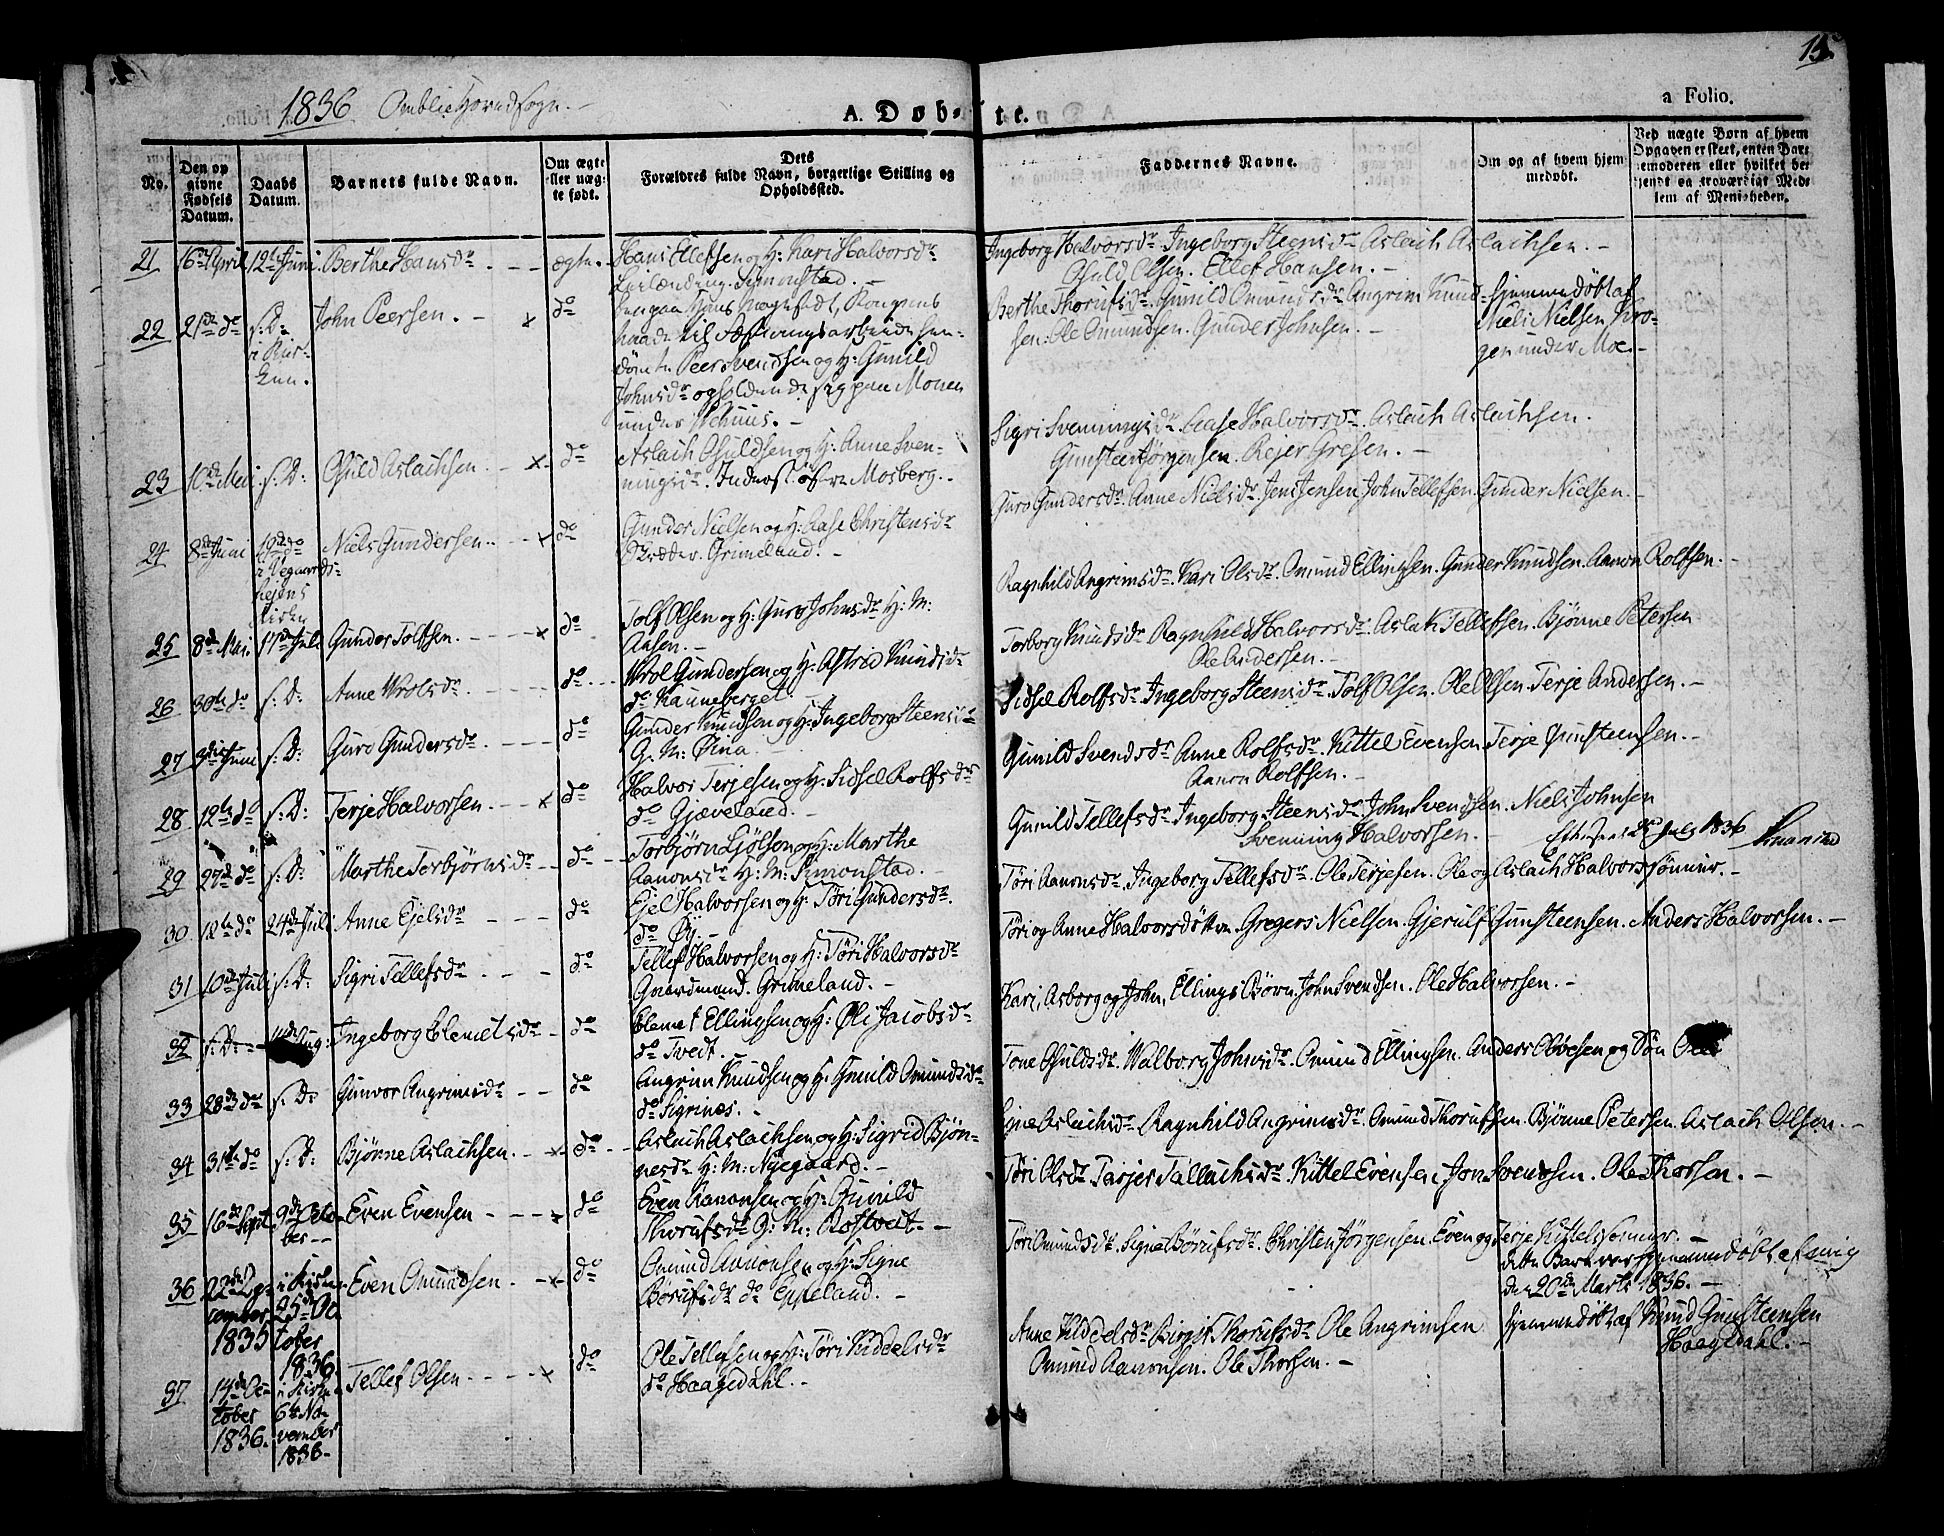 15.
1836 Omblie Hovedsogn. -
A. Døb-te.
a Folio.
No.
Den op
givne
Fødsels
Datum.
Daabs
Datum.
Barnets fulde Navn.
Om ægte
eller uæg-
te født.
Dets
Forældres fulde Navn, borgerlige Stilling og
Opholdssted.
Faddernes Navne.
Om og af hvem hjem
medøbt.
Ved uægte Børn af hvem
Opgaven er skeet, enten Bar-
nemoderen eller hvilket be-
kjendt og troværdigt Med-
lem af Menigheden.
21 16de April 12te Juni Berthe Hansdr. - - - ægte. -
Hans Ellefsen og H: Kari Halvorsdr
Leilænding. Simonstad. -
Ingeborg Halvorsdr. Ingeborg Steensdr Aslach Aslachsen. -
Osuld Olsen. Ellef Hansen. -
22 21de do s: D: John Peersen. - x do
i Kir-
ken.
til Fæstningsarbeide hen-
dømte Peer Svendsen og H: Gunild
Johnsdr opholdende sig paa Monen
under
Berthe Thorufsdr. Gunild Omundsdr Angrim Knud-
sen. Ole Omundsen. Gunder Johnsen. -
hjemmedøbt af
Niels Nielsen Kro-
gen under Moe. -
23 10de Mai s: D: Osuld Aslachsen - x - do
Aslach Osuldsen og H: Anne Sven-
ningsdr. Inderst øfre Mosberg. -
Sigri Svenningsdr. Aase Halvorsdr. Aslach Aslachsen.
Gunsteen Jørgensen. Rejer Gresen. -
24 8de Juni 19de do Niels Gundersen. - - x do
i Vegaards-
hejens
Kirke
Gunder Nielsen og H: Aase Christensdr
Grimeland. -
Guro Gundersdr. Anne Nielsdr. Jens Jensen John Tellefsen. Gunder Nielsen. -
25 8de Mai. 17de Juli Gunder Tolfsen. - - - x do
Tolf Olsen og H: Guro Johnsdr H: M:
Aasen. -
Ragnhild Angrimsdr. Kari Olsdr. Omund Ellingsen. Gunder Knudsen. Aanon Rolfsen. -
26 30te do s: D: Anne Wrolsdr. - - - do - -
Wrol Gundersen og H: Astrid Knudsdr
do Kauneberget -
Torborg Knudsdr Ragnhild Halvorsdr. Aslak Tellefsen. Bjønne Petersen
Ole Andersen. -
27 Juni s: D: Guro Gundersdr. - - - do
Gunder Knudsen og H: Ingeborg Steensdr
G. M: Øina -
Sidsel Rolfsdr. Ingeborg Steensdr. Tolf Olsen. Ole Olsen. Terje Andersen. -
28 12te do s: D: Terje Halvorsen. - - x do
Halvor Terjesen og H: Sidsel Rolfsdr
do Gjæveland. -
Gunild Svendsdr Anne Rolfsdr. Kittel Evensen Terje Gunsteensen. -
Aanon Rolfsen. -
29 27de do s: D: Marthe Torbjørnsdr - - do - - -
Torbjørn Ljølsen og H: Marthe
Aanonsdr H: M: Simonstad. -
Gunild Tellefsdr Ingeborg Steensdr. John Svendsen. Niels Johnsen
Svenning Halvorsen. -
Juli 1836
30 12te do 24de Juli Anne Ejelsdr - - - do
Ejel Halvorsen og H: Tøri Gundersdr.
do Øij. -
Tøri Aanonsdr. Ingeborg Tellefsdr. Ole Terjesen. Ole og Aslach Halvorssønner. -
31 10de Juli s: D: Sigri Tellefsdr. - - do
Tellef Halvorsen og H: Tøri Halvorsdr
Gaardmand. Grimeland. -
Tøri og Anne Halvorsdøttre. Gregers Nielsen. Gjerulf Gunsteensen. Anders Halvorsen. -
32 s: D: - - Aug: Ingeborg Clemetsdr. - do
Clemet Ellingsen og H: Øli Jacobsdr
do Tvedt.
Kari, Asborg og John, Ellings Børn. John Svendsen. Ole Halvorsen. -
33 28de do s: D: Gunvor Angrimsdr - - do
Angrim Knudsen og H: Gunild Omundsdr
do Sigrinæs. -
Tone Osuldsdr. Walborg Johnsdr. Omund Ellingsen. Anders Olvesen og Søn Ole
34 31te do s: D: Bjønne Aslachsen. - x - do - -
Aslach Aslachsen og H: Sigrid Bjøn-
nesdr H: M: Nyegaard. -
Signe Aslachsdr. Ragnhild Angrimsdr. Omund Thorufsen. Bjønne Petersen. Aslach Olsen. -
35 16de Sept. 9de Octo- Even Evensen - - - x do
ber - -
Even Aanonsen og H: Gunild
Thorufsdr G: M: Rostveit -
Tøri Olsdr. Tarjer Tallachsdr. Kittel Evensen, Jon Svendsen. Ole Thorsen. -
36 22de De- i Kirken Even Omundsen. - x - do
cember 25de Oc
1835 tober
1836
Omund Aanonsen og H: Signe
Børufsdr do Eppeland. -
Tøri Omundsdr. Signe Børufsdr. Christen Jørgensen. Even og Terje Kittelssønner. -
dette Barn var hjemmedøbt af mig
den 20de Marts 1836. -
37 14de Oc- i Kirken Tellef Olsen - - - - x do
tober 6te No-
1836. vember
1836. -
Ole Tellefsen og H: Tøri Kiddelsdr
do Haagedahl. -
Anne Kiddelsdr. Birgit Thorufsdr Ole Angrimsen
Omund Aanonsen. Ole Thorsen. -
hjemmedøbt af Knud Gunsteensen
Haagedahl. -